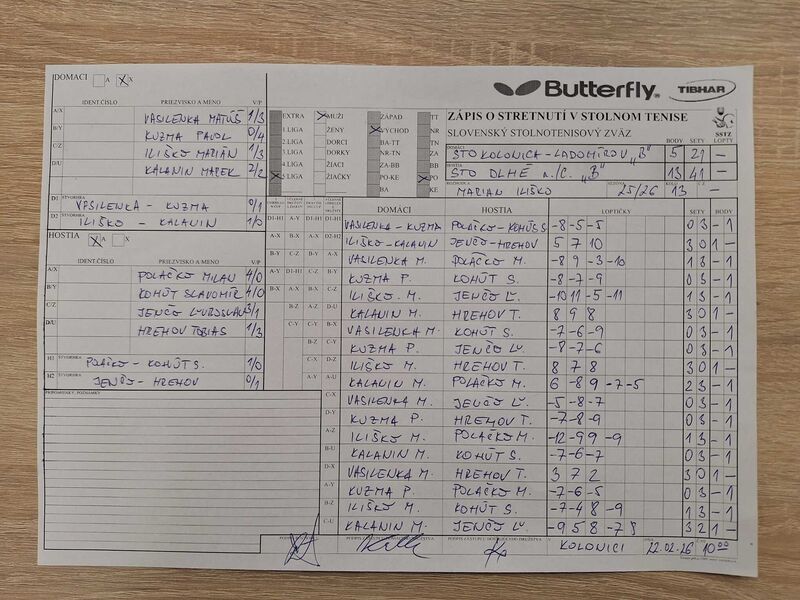 DOMÁCI A X
Butterfly TIBHAR
IDENT.ČÍSLO PRIEZVISKO A MENO V/P
A/X VASILENKA MATÚŠ 1/3
B/Y KUZMA PAVOL 0/4
C/Z ILIŠKO MARIÁN 1/3
D/U KALANIN MAREK 2/2
D1 ŠTVORHRA VASILENKA - KUZMA 0/1
D2 ŠTVORHRA ILIŠKO - KALANIN 1/0
HOSTIA A X
IDENT.ČÍSLO PRIEZVISKO A MENO V/P
A/X POLAČKO MILAN 4/0
B/Y KOHÚT SLAVOMÍR 4/0
C/Z JENČO ĽUBOSLAV 3/1
D/U HREHOV TOBIAS 1/3
H1 ŠTVORHRA POLAČKO - KOHÚT S. 1/0
H2 ŠTVORHRA JENČO - HREHOV 0/1
PRIPOMIENKY, POZNÁMKY
EXTRA MUŽI ZÁPAD TT
1 LIGA ŽENY VÝCHOD NR
2 LIGA DORCI BB-ZA
3 LIGA DORKY NR-TN ZA
4 LIGA ŽIACI ZA-BB
5 LIGA ŽIAČKY PO-KE PO
BA KE
ZÁPIS O STRETNUTÍ V STOLNOM TENISE
SLOVENSKÝ STOLNOTENISOVÝ ZVÄZ
SSTZ
BODY SETY LOPTY
DOMÁCI STO KOLONICA - LADOMÍROV "B" 5 21 -
HOSTIA STO DLHÉ n/C. "B" 13 41 -
MARIAN ILIŠKO 25/26 13 -
DOMÁCI HOSTIA LOPTIČKY SETY BODY
VASILENKA - KUZMA POLAČKO - KOHÚT S. -8 -5 -5 0 3 - 1
ILIŠKO - KALANIN JENČO - HREHOV 5 7 10 3 0 1 -
VASILENKA M. POLAČKO M. -8 9 -3 -10 1 3 - 1
KUZMA P. KOHÚT S. -8 -7 -9 0 3 - 1
ILIŠKO M. JENČO Ľ. -10 11 -5 -11 1 3 - 1
KALANIN M. HREHOV T. 8 9 8 3 0 1 -
VASILENKA M. KOHÚT S. -7 -6 -9 0 3 - 1
KUZMA P. JENČO ĽU. -8 -7 -6 0 3 - 1
ILIŠKO M. HREHOV T. 8 7 8 3 0 1 -
KALANIN M. POLAČKO M. 6 -8 9 -7 -5 2 3 - 1
VASILENKA M. JENČO Ľ. -5 -8 -7 0 3 - 1
KUZMA P. HREHOV T. -7 -8 -9 0 3 - 1
ILIŠKO M. POLAČKO M. -12 -9 9 -9 1 3 - 1
KALANIN M. KOHÚT S. -7 -6 -7 0 3 - 1
VASILENKA M. HREHOV T. 3 7 2 3 0 1 -
KUZMA P. POLAČKO M. -7 -6 -5 0 3 - 1
ILIŠKO M. KOHÚT S. -7 -4 8 -9 1 3 - 1
KALANIN M. JENČO ĽU. -9 5 8 -7 8 3 2 1 -
V KOLONICI 22.02.26 10 00